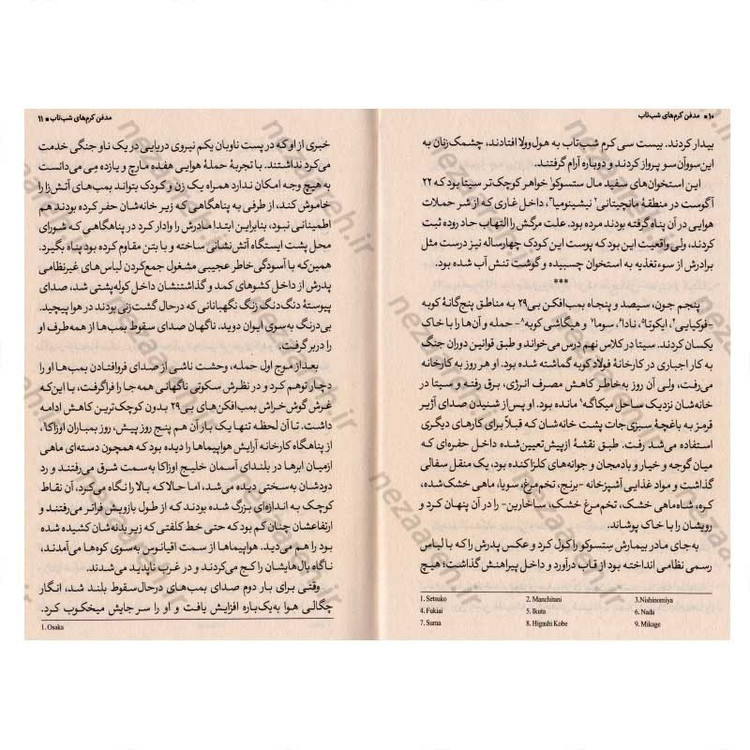 ۱۰ ■ مدفن کرم‌های شب‌تاب
بیدار کردند. بیست سی کرم شب‌تاب به هول‌وولا افتادند، چشمک‌زنان به
این‌سووآن‌سو پرواز کردند و دوباره آرام گرفتند.
این استخوان‌های سفید مال ستسکو¹ خواهر کوچک‌تر سیتا بود که ۲۲
آگوست در منطقهٔ مانچیتانی² نیشینومیا³، داخل غاری که از شر حملات
هوایی در آن پناه گرفته بودند مرده بود. علت مرگش را التهاب حاد روده ثبت
کردند، ولی واقعیت این بود که پوست این کودک چهارساله نیز درست مثل
برادرش از سوءتغذیه به استخوان چسبیده و گوشت تنش آب شده بود.
***
پنجم جون، سیصد و پنجاه بمب‌افکن بی۲۹ به مناطق پنج‌گانهٔ کوبه
-فوکیایی⁴، ایکوتا⁵، نادا⁶، سوما⁷ و هیگاشی کوبه⁸- حمله و آن‌ها را با خاک
یکسان کردند. سیتا در کلاس نهم درس می‌خواند و طبق قوانین دوران جنگ
به کار اجباری در کارخانهٔ فولاد کوبه گماشته شده بود. او هر روز به کارخانه
می‌رفت، ولی آن روز به‌خاطر کاهش مصرف انرژی، برق رفته و سیتا در
خانه‌شان نزدیک ساحل میکاگه⁹ مانده بود. او پس از شنیدن صدای آژیر
قرمز به باغچهٔ سبزی‌جات پشت خانه‌شان که قبلاً برای کارهای دیگری
استفاده می‌شد رفت. طبق نقشهٔ ازپیش‌تعیین‌شده داخل حفره‌ای که
میان گوجه و خیار و بادمجان و جوانه‌های کلزا کنده بود، یک منقل سفالی
گذاشت و مواد غذایی آشپزخانه -برنج، تخم‌مرغ، سویا، ماهی خشک‌شده،
کره، شاه‌ماهی خشک، تخم‌مرغ خشک، ساخارین- را در آن پنهان کرد و
رویشان را با خاک پوشاند.
به‌جای مادر بیمارش ستسکو را کول کرد و عکس پدرش را که با لباس
رسمی نظامی انداخته بود از قاب درآورد و داخل پیراهنش گذاشت؛ هیچ
1. Setsuko 2. Manchitani 3.Nishinomiya
4. Fukiai 5. Ikuta 6. Nada
7. Suma 8. Higashi Kobe 9. Mikage
مدفن کرم‌های شب‌تاب ■ ۱۱
خبری از او که در پست ناوبان یکم نیروی دریایی در یک ناو جنگی خدمت
می‌کرد نداشتند. با تجربهٔ حملهٔ هوایی هفده مارچ و یازده می می‌دانست
به هیچ وجه امکان ندارد همراه یک زن و کودک بتواند بمب‌های آتش‌زا را
خاموش کند، از طرفی به پناهگاهی که زیر خانه‌شان حفر کرده بودند هم
اطمینانی نبود، بنابراین ابتدا مادرش را وادار کرد در پناهگاهی که شورای
محل پشت ایستگاه آتش نشانی ساخته و با بتن مقاوم کرده بود پناه بگیرد.
همین‌که با آسودگی خاطر عجیبی مشغول جمع‌کردن لباس‌های غیرنظامی
پدرش از داخل کشوهای کمد و گذاشتنشان داخل کوله‌پشتی شد، صدای
پیوستهٔ دنگ‌دنگ زنگ نگهبانانی که درحال گشت‌زنی بودند در هوا پیچید.
بی‌درنگ به‌سوی ایوان دوید. ناگهان صدای سقوط بمب‌ها از همه‌طرف او
را دربرگرفت.
بعد از موج اول حمله، وحشت ناشی از صدای فروافتادن بمب‌ها او را
دچار توهم کرد و در نظرش سکوتی ناگهانی همه‌جا را فراگرفت، با این‌که
غرش گوش‌خراش بمب‌افکن‌های بی۲۹ بدون کوچک‌ترین کاهش ادامه
داشت. تا آن لحظه تنها یک باز آن هم پنج روز پیش، روز بمباران اوزاکا¹،
از پناهگاه کارخانه آرایش هواپیماها را دیده بود که همچون دسته‌ای ماهی
ازمیان ابرها در بلندای آسمان خلیج اوزاکا به‌سمت شرق می‌رفتند و رد
دودشان به‌سختی دیده می‌شد، اما حالا که بالا را نگاه می‌کرد، آن نقاط
کوچک به اندازه‌ای بزرگ شده بودند که از طول بازویش فراتر می‌رفتند و
ارتفاعشان چنان کم بود که حتی خط کلفتی که زیر بدنه‌شان کشیده شده
بود را هم می‌دید. هواپیماها از سمت اقیانوس به‌سوی کوه‌ها می‌آمدند،
ناگاه بال‌هایشان را کج می‌کردند و در غرب ناپدید می‌شدند.
وقتی برای بار دوم صدای بمب‌های درحال‌سقوط بلند شد، انگار
چگالی هوا به‌یک‌باره افزایش یافت و او را سر جایش میخکوب کرد.
1. Osaka
nezaameh.ir